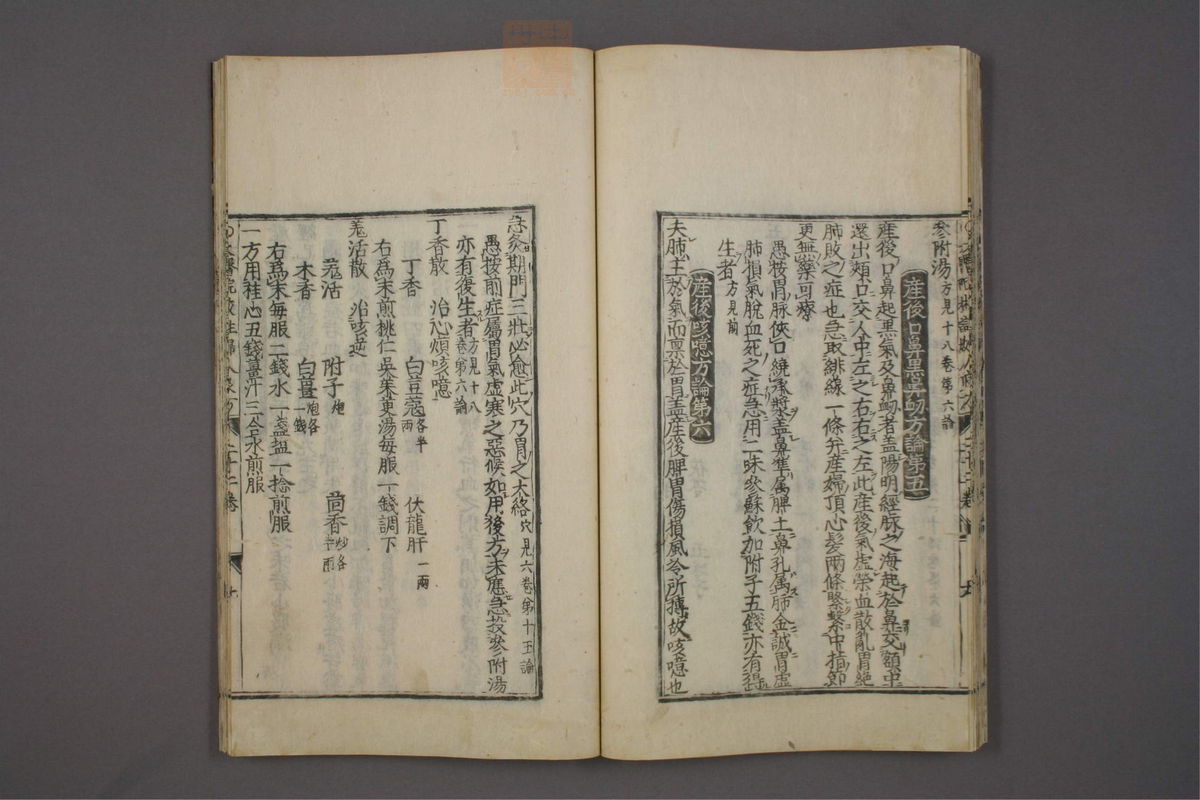 參附湯 方見十八卷第六論
産後口鼻黒鼻衂方論第五
産後口鼻起黒氣及鼻衂者盖陽明經脉之海起於鼻交額中
還出頰口交人中左之右右之左此産後氣虛榮血散亂胃絶
肺敗之症也急取緋線一條并産婦頂心髮兩條緊繫中指節
更無藥可療
愚按胃脉俠口繞承漿盖鼻準属脾土鼻孔属肺金誠胃虛
肺損氣脫血死之症急用二味參蘇飲加附子五錢亦有得
生者 方見前
産後咳噫方論第六
夫肺主於氣而禀於胃盖産後脾胃傷損風冷所搏故咳噫也
急灸期門三壯必愈此穴乃胃之大絡 穴見六卷第十五論
愚按前症屬胃氣虛寒之惡候如用後方未應急投參附湯
亦有復生者 方見十八卷第六論
丁香散 治心煩咳噫
丁香 白豆蔻 各半兩 伏龍肝 一兩
右為末煎桃仁吳茱萸湯每服一錢調下
羌活散 治咳逆
羌活 附子 炮 茴香 炒各半兩
木香 白薑 炮各一錢
右為末每服二錢水一盞塩一捻煎服
一方用桂心五錢薑汁三合水煎服